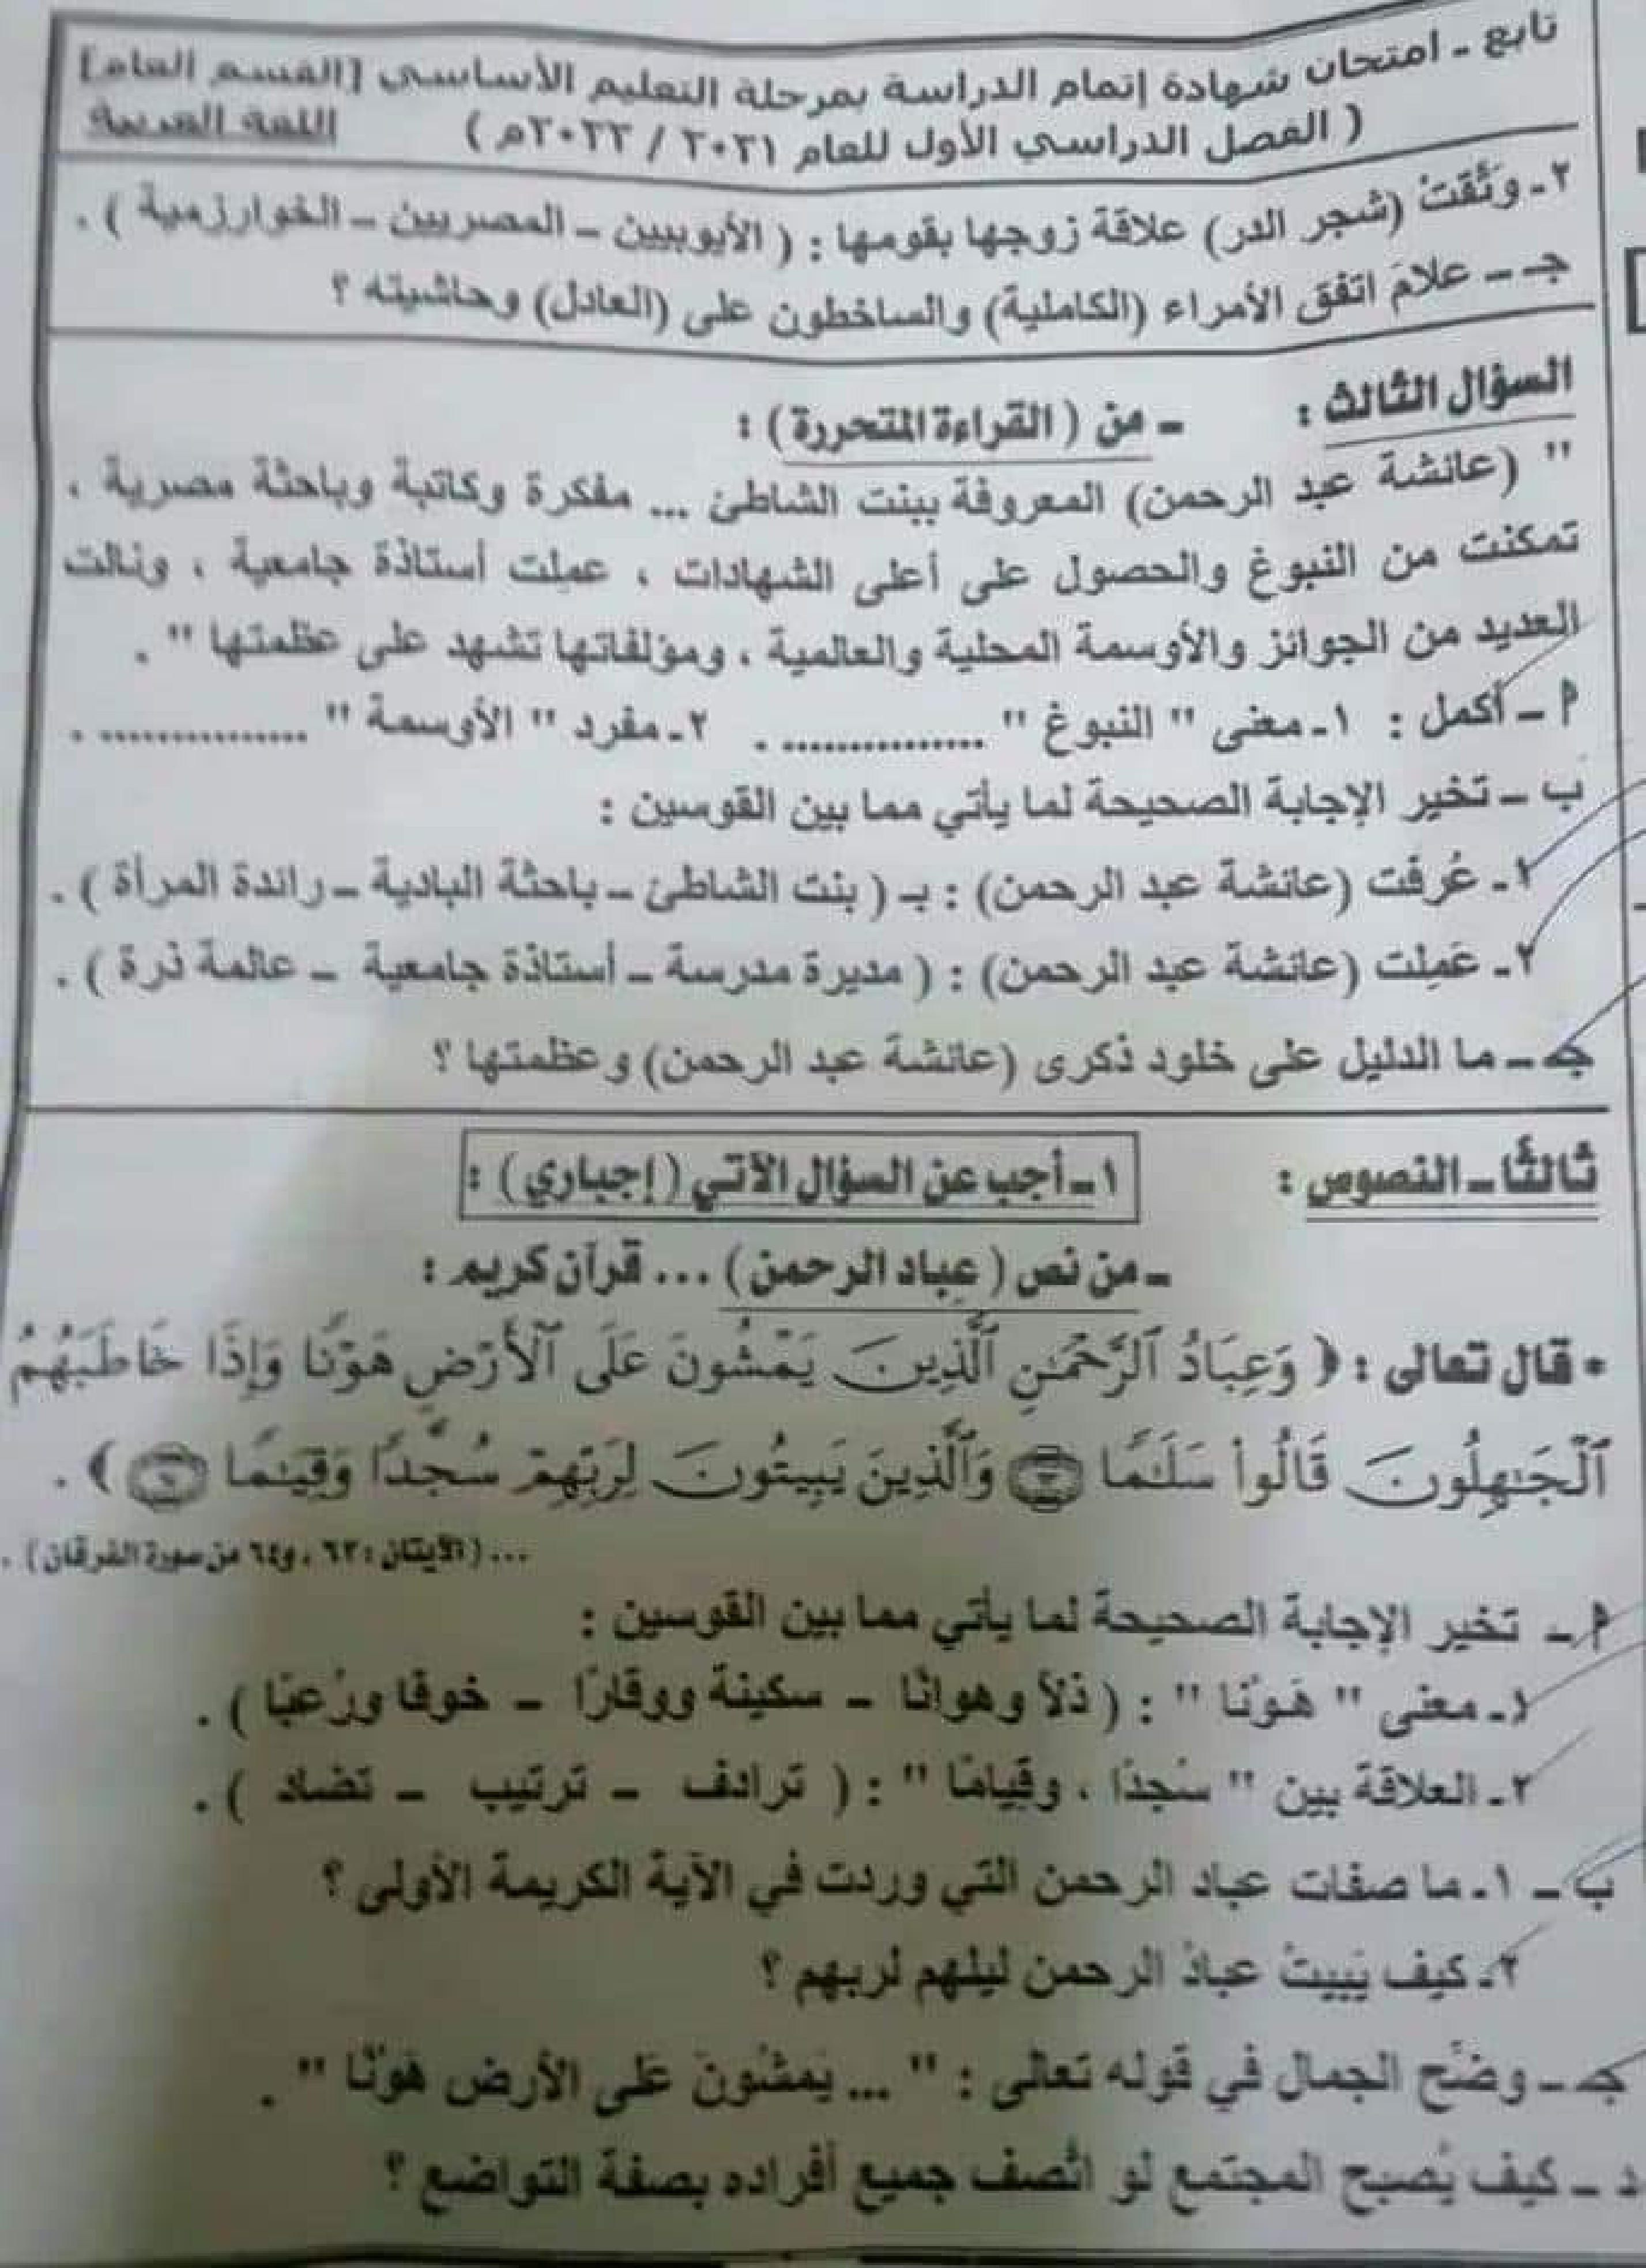 تابع - امتحان شهادة إتمام الدراسة بمرحلة التعليم الأساسي [القسم العام]
( الفصل الدراسي الأول للعام ٢٠٢١ / ٢٠٢٢م ) اللغة العربية
٢- وَثَّقَتْ (شجر الدر) علاقة زوجها بقومها : ( الأيوبيين - المصريين - الخوارزمية ) .
جـ - علامَ اتفق الأمراء (الكاملية) والساخطون على (العادل) وحاشيته ؟
السؤال الثالث : - من ( القراءة المتحررة ) :
" (عائشة عبد الرحمن) المعروفة ببنت الشاطئ ... مفكرة وكاتبة وباحثة مصرية ،
تمكنت من النبوغ والحصول على أعلى الشهادات ، عملت أستاذة جامعية ، ونالت
العديد من الجوائز والأوسمة المحلية والعالمية ، ومؤلفاتها تشهد على عظمتها " .
أ - أكمل : ١- معنى " النبوغ " ............... . ٢- مفرد " الأوسمة " ............... .
ب - تخير الإجابة الصحيحة لما يأتي مما بين القوسين :
١- عُرفت (عائشة عبد الرحمن) : بـ ( بنت الشاطئ - باحثة البادية - رائدة المرأة ) .
٢- عَمِلت (عائشة عبد الرحمن) : ( مديرة مدرسة - أستاذة جامعية - عالمة ذرة ) .
جـ - ما الدليل على خلود ذكرى (عائشة عبد الرحمن) وعظمتها ؟
ثالثًا - النصوص : ١- أجب عن السؤال الآتي ( إجباري ) :
- من نص ( عباد الرحمن ) ... قرآن كريم :
* قال تعالى : ﴿ وَعِبَادُ ٱلرَّحْمَٰنِ ٱلَّذِينَ يَمْشُونَ عَلَى ٱلْأَرْضِ هَوْنًا وَإِذَا خَاطَبَهُمُ
ٱلْجَٰهِلُونَ قَالُوا۟ سَلَٰمًا ۝ وَٱلَّذِينَ يَبِيتُونَ لِرَبِّهِمْ سُجَّدًا وَقِيَٰمًا ۝ ﴾ .
... ( الآيتان : ٦٣ ، و٦٤ من سورة الفرقان ) .
أ - تخير الإجابة الصحيحة لما يأتي مما بين القوسين :
١- معنى " هَوْنًا " : ( ذلاً وهوانًا - سكينة ووقارًا - خوفًا ورُعبًا ) .
٢- العلاقة بين " سُجدًا ، وقيامًا " : ( ترادف - ترتيب - تضاد ) .
ب - ١- ما صفات عباد الرحمن التي وردت في الآية الكريمة الأولى ؟
٢- كيف يَبيتُ عبادُ الرحمن ليلهم لربهم ؟
جـ - وضِّح الجمال في قوله تعالى : " ... يَمشُونَ عَلى الأرض هَوْنًا " .
د - كيف يُصبح المجتمع لو اتَّصف جميع أفراده بصفة التواضع ؟